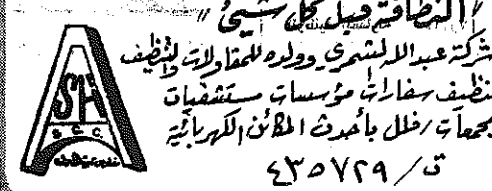 "النظافة قبل كل شيئ"
شركة عبدالله الشمري وولده للمقاولات والتنظيف
تنظيف سفارات مؤسسات مستشفيات
مجمعات / فلل بأحدث المكائن الكهربائية
ت / ٤٣٥٧٢٩
SH
S. C. C.